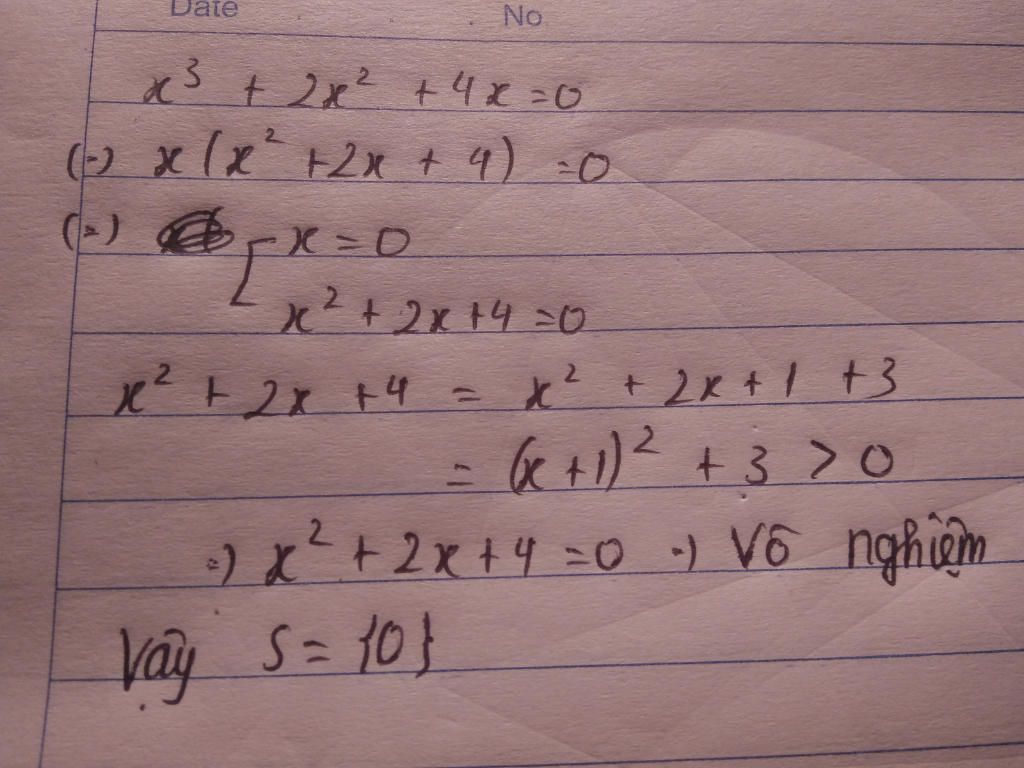 Date No
x³ + 2x² + 4x = 0
(=) x (x² + 2x + 4) = 0
(=) x = 0
x² + 2x + 4 = 0
x² + 2x + 4 = x² + 2x + 1 + 3
= (x + 1)² + 3 > 0
=) x² + 2x + 4 = 0 =) Vô nghiệm
Vậy S = {0}